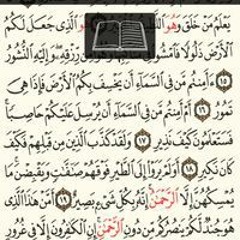 يَعْلَمُ مَنْ خَلَقَ وَهُوَ ٱلَّذِى جَعَلَ لَكُمُ
ٱلْأَرْضَ ذَلُولًا فَٱمْشُوا۟ رِّزْقِهِۦ وَإِلَيْهِ ٱلنُّشُورُ
١٥ ءَأَمِنتُم مَّن فِى ٱلسَّمَآءِ أَن يَخْسِفَ بِكُمُ ٱلْأَرْضَ فَإِذَا هِىَ
تَمُورُ ١٦ أَمْ أَمِنتُم مَّن فِى ٱلسَّمَآءِ أَن يُرْسِلَ عَلَيْكُمْ حَاصِبًا
فَسَتَعْلَمُونَ كَيْفَ نَذِيرِ ١٧ وَلَقَدْ كَذَّبَ ٱلَّذِينَ مِن قَبْلِهِمْ فَكَيْفَ
كَانَ نَكِيرِ ١٨ أَوَلَمْ يَرَوْا۟ إِلَى ٱلطَّيْرِ فَوْقَهُمْ صَٰٓفَّٰتٍ وَيَقْبِضْنَ مَا
يُمْسِكُهُنَّ إِلَّا ٱلرَّحْمَٰنُ إِنَّهُۥ بِكُلِّ شَىْءٍۭ بَصِيرٌ ١٩ أَمَّنْ هَٰذَا ٱلَّذِى
هُوَ جُندٌ لَّكُمْ يَنصُرُكُم مِّن دُونِ ٱلرَّحْمَٰنِ إِنِ ٱلْكَٰفِرُونَ إِلَّا فِى غُرُورٍ